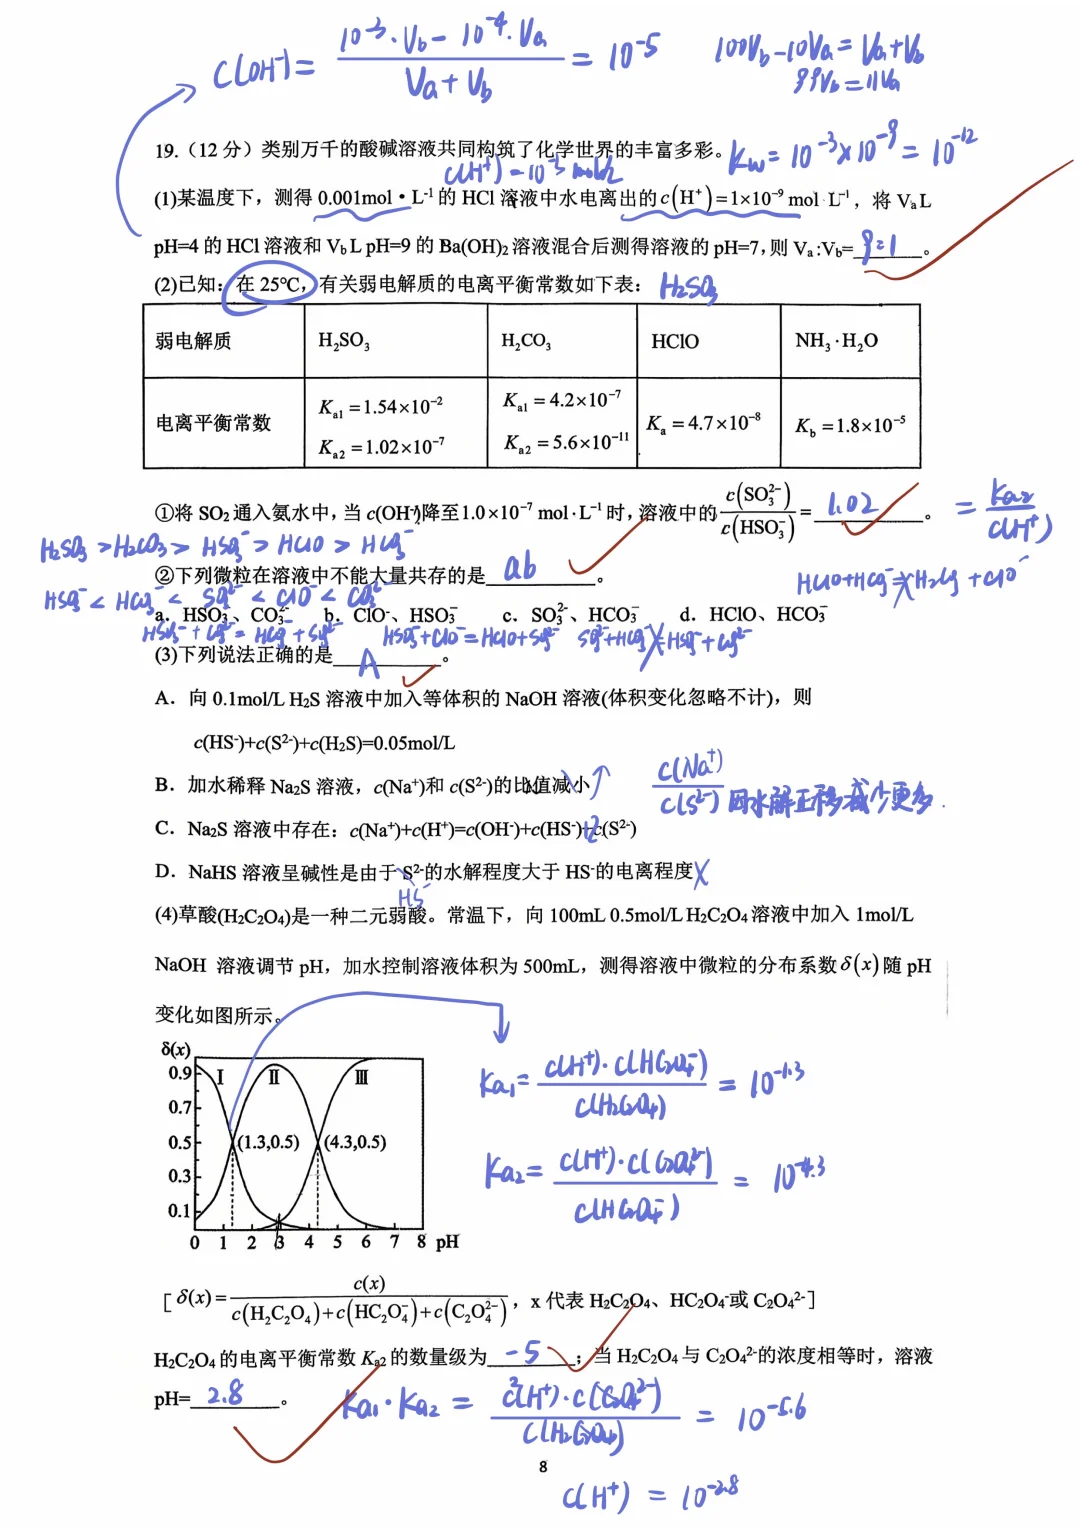 c(OH⁻) = (10⁻³·V_b − 10⁻⁴·V_a)/(V_a + V_b) = 10⁻⁵
100V_b − 10V_a = V_a + V_b
99V_b = 11V_a
19.（12 分）类别万千的酸碱溶液共同构筑了化学世界的丰富多彩。
K_w = 10⁻³ × 10⁻⁹ = 10⁻¹²
c(H⁺) = 10⁻³ mol/L
(1)某温度下，测得 0.001mol·L⁻¹ 的 HCl 溶液中水电离出的 c(H⁺)=1×10⁻⁹ mol·L⁻¹，将 VₐL
pH=4 的 HCl 溶液和 V_b L pH=9 的 Ba(OH)₂ 溶液混合后测得溶液的 pH=7,则 Vₐ:V_b= 9:1 。
(2)已知：在 25℃，有关弱电解质的电离平衡常数如下表： H₂SO₃
弱电解质 H₂SO₃ H₂CO₃ HClO NH₃·H₂O
电离平衡常数 Kₐ₁=1.54×10⁻² Kₐ₂=1.02×10⁻⁷ Kₐ₁=4.2×10⁻⁷ Kₐ₂=5.6×10⁻¹¹ Kₐ=4.7×10⁻⁸ K_b=1.8×10⁻⁵
①将 SO₂ 通入氨水中，当 c(OH⁻)降至1.0×10⁻⁷ mol·L⁻¹ 时，溶液中的 c(SO₃²⁻)/c(HSO₃⁻) = 1.02 。 = Ka₂/c(H⁺)
H₂SO₃ > H₂CO₃ > HSO₃⁻ > HClO > HCO₃⁻
②下列微粒在溶液中不能大量共存的是 ab 。
HClO + HCO₃⁻ ≠ H₂CO₃ + ClO⁻
HSO₃⁻ < HCO₃⁻ < SO₃²⁻ < ClO⁻ < CO₃²⁻
a. HSO₃⁻、CO₃²⁻ b. ClO⁻、HSO₃⁻ c. SO₃²⁻、HCO₃⁻ d. HClO、HCO₃⁻
HSO₃⁻ + CO₃²⁻ = HCO₃⁻ + SO₃²⁻ HSO₃⁻ + ClO⁻ = HClO + SO₃²⁻ SO₃²⁻ + HCO₃⁻ ≠ HSO₃⁻ + CO₃²⁻
(3)下列说法正确的是 A 。
A．向 0.1mol/L H₂S 溶液中加入等体积的 NaOH 溶液(体积变化忽略不计)，则
c(HS⁻)+c(S²⁻)+c(H₂S)=0.05mol/L
B．加水稀释 Na₂S 溶液，c(Na⁺)和 c(S²⁻)的比值减小 ↑
c(Na⁺)/c(S²⁻) 因水解正移减少更多.
C．Na₂S 溶液中存在：c(Na⁺)+c(H⁺)=c(OH⁻)+c(HS⁻)+c(S²⁻)
2
D．NaHS 溶液呈碱性是由于 S²⁻的水解程度大于 HS⁻的电离程度 ×
HS⁻
(4)草酸(H₂C₂O₄)是一种二元弱酸。常温下，向 100mL 0.5mol/L H₂C₂O₄ 溶液中加入 1mol/L
NaOH 溶液调节 pH，加水控制溶液体积为 500mL，测得溶液中微粒的分布系数 δ(x) 随 pH
变化如图所示。
δ(x)
0.9
0.7
0.5
0.3
0.1
Ⅰ Ⅱ Ⅲ
(1.3,0.5) (4.3,0.5)
0 1 2 3 4 5 6 7 8 pH
Ka₁ = c(H⁺)·c(HC₂O₄⁻)/c(H₂C₂O₄) = 10⁻¹·³
Ka₂ = c(H⁺)·c(C₂O₄²⁻)/c(HC₂O₄⁻) = 10⁻⁴·³
[ δ(x)= c(x)/(c(H₂C₂O₄)+c(HC₂O₄⁻)+c(C₂O₄²⁻))，x 代表 H₂C₂O₄、HC₂O₄⁻或 C₂O₄²⁻]
H₂C₂O₄ 的电离平衡常数 Kₐ₂ 的数量级为 -5 ；当 H₂C₂O₄ 与 C₂O₄²⁻的浓度相等时，溶液
pH= 2.8 。
Ka₁·Ka₂ = c²(H⁺)·c(C₂O₄²⁻)/c(H₂C₂O₄) = 10⁻⁵·⁶
8
c(H⁺) = 10⁻²·⁸